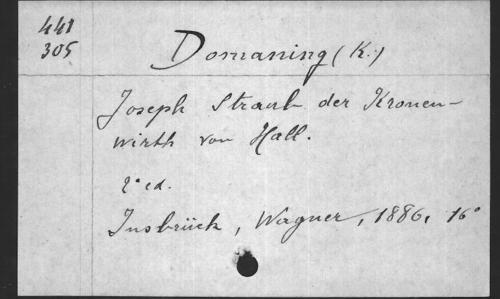 441
305
Domaning (K.)
Joseph Straub der Kronen-
wirth von Hall.
2e ed.
Insbrück, Wagner, 1886, 16°